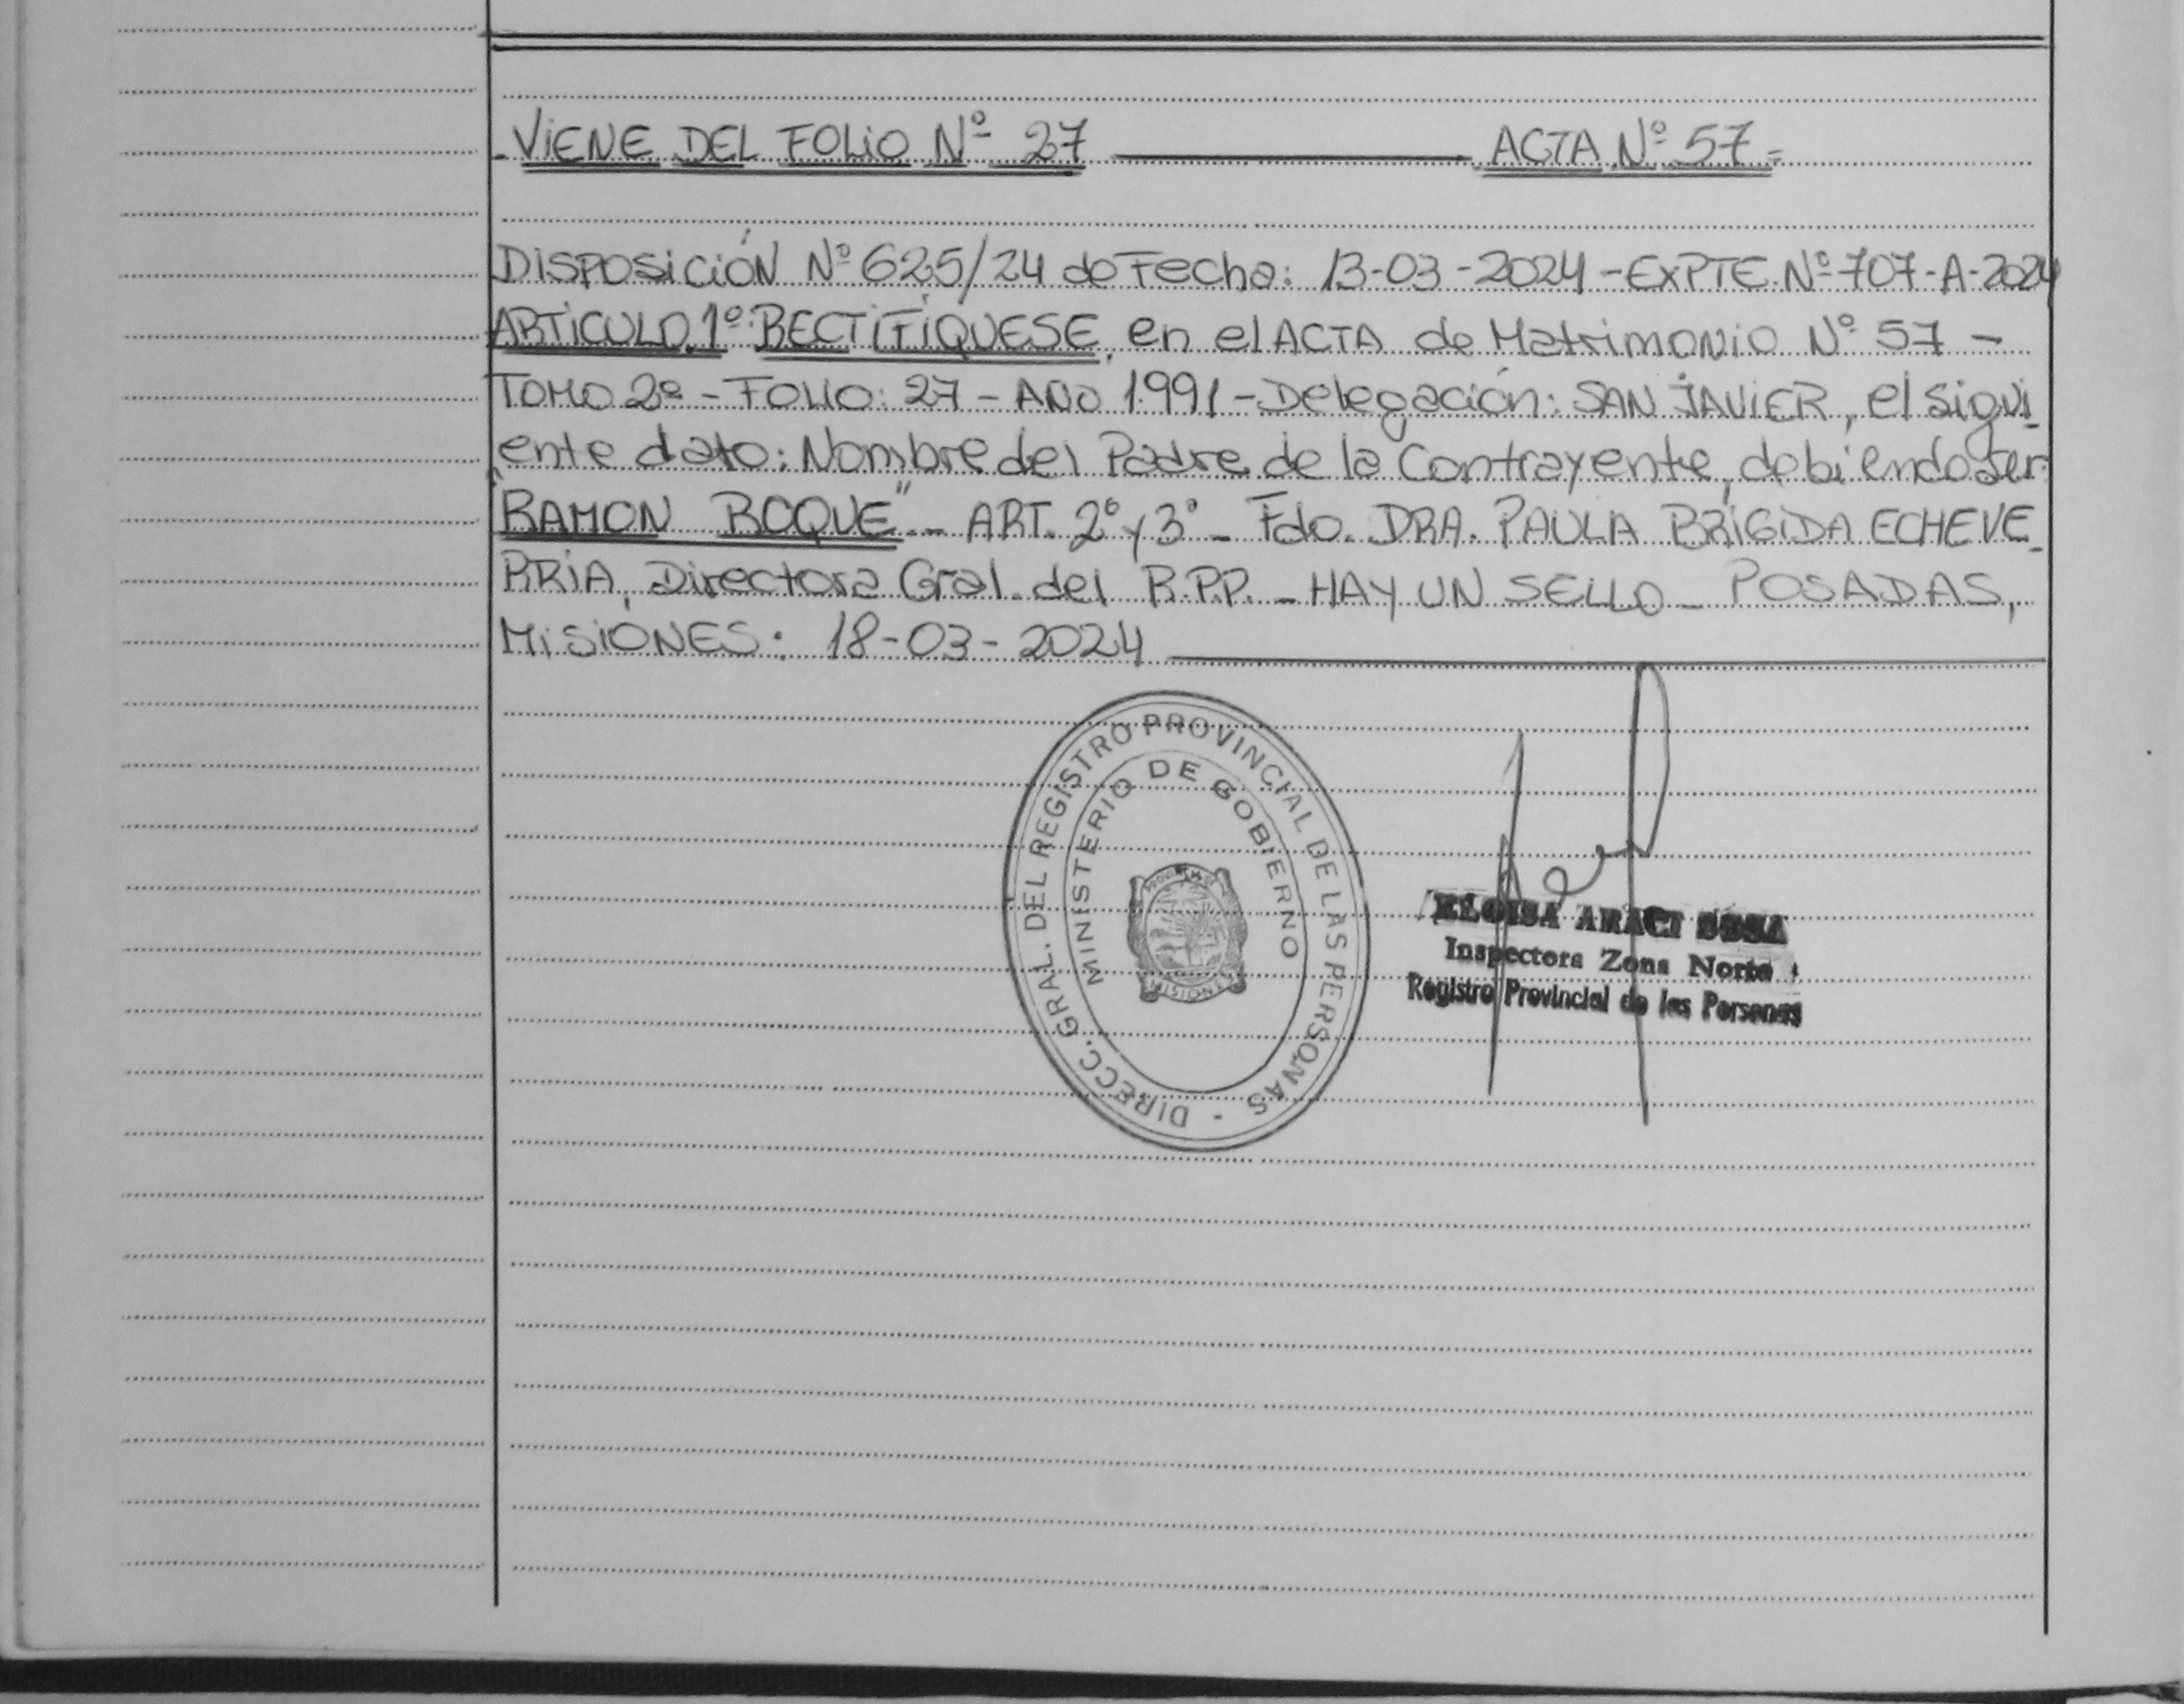 - VIENE DEL FOLIO Nº 27 ACTA Nº 57 =
DISPOSICIÓN Nº 625/24 de Fecha: 13-03-2024 - EXPTE. Nº 707-A-2024
ARTICULO 1º: RECTIFÍQUESE, en el ACTA de Matrimonio Nº 57 -
TOMO 2º - FOLIO: 27 - AÑO 1991 - Delegación: SAN JAVIER, el sigui_
ente dato: Nombre del Padre de la Contrayente, debiendo ser:
"RAMON ROQUE" - ART. 2º y 3º - Fdo. DRA. PAULA BRÍGIDA ECHEVE_
RRIA, Directora Gral. del R.P.P. - HAY UN SELLO - POSADAS,
MISIONES: 18-03-2024
DIRECC. GRAL. DEL REGISTRO PROVINCIAL DE LAS PERSONAS -
MINISTERIO DE GOBIERNO
MISIONES
ELOISA ARACI SOSA
Inspectora Zona Norte
Registro Provincial de las Personas